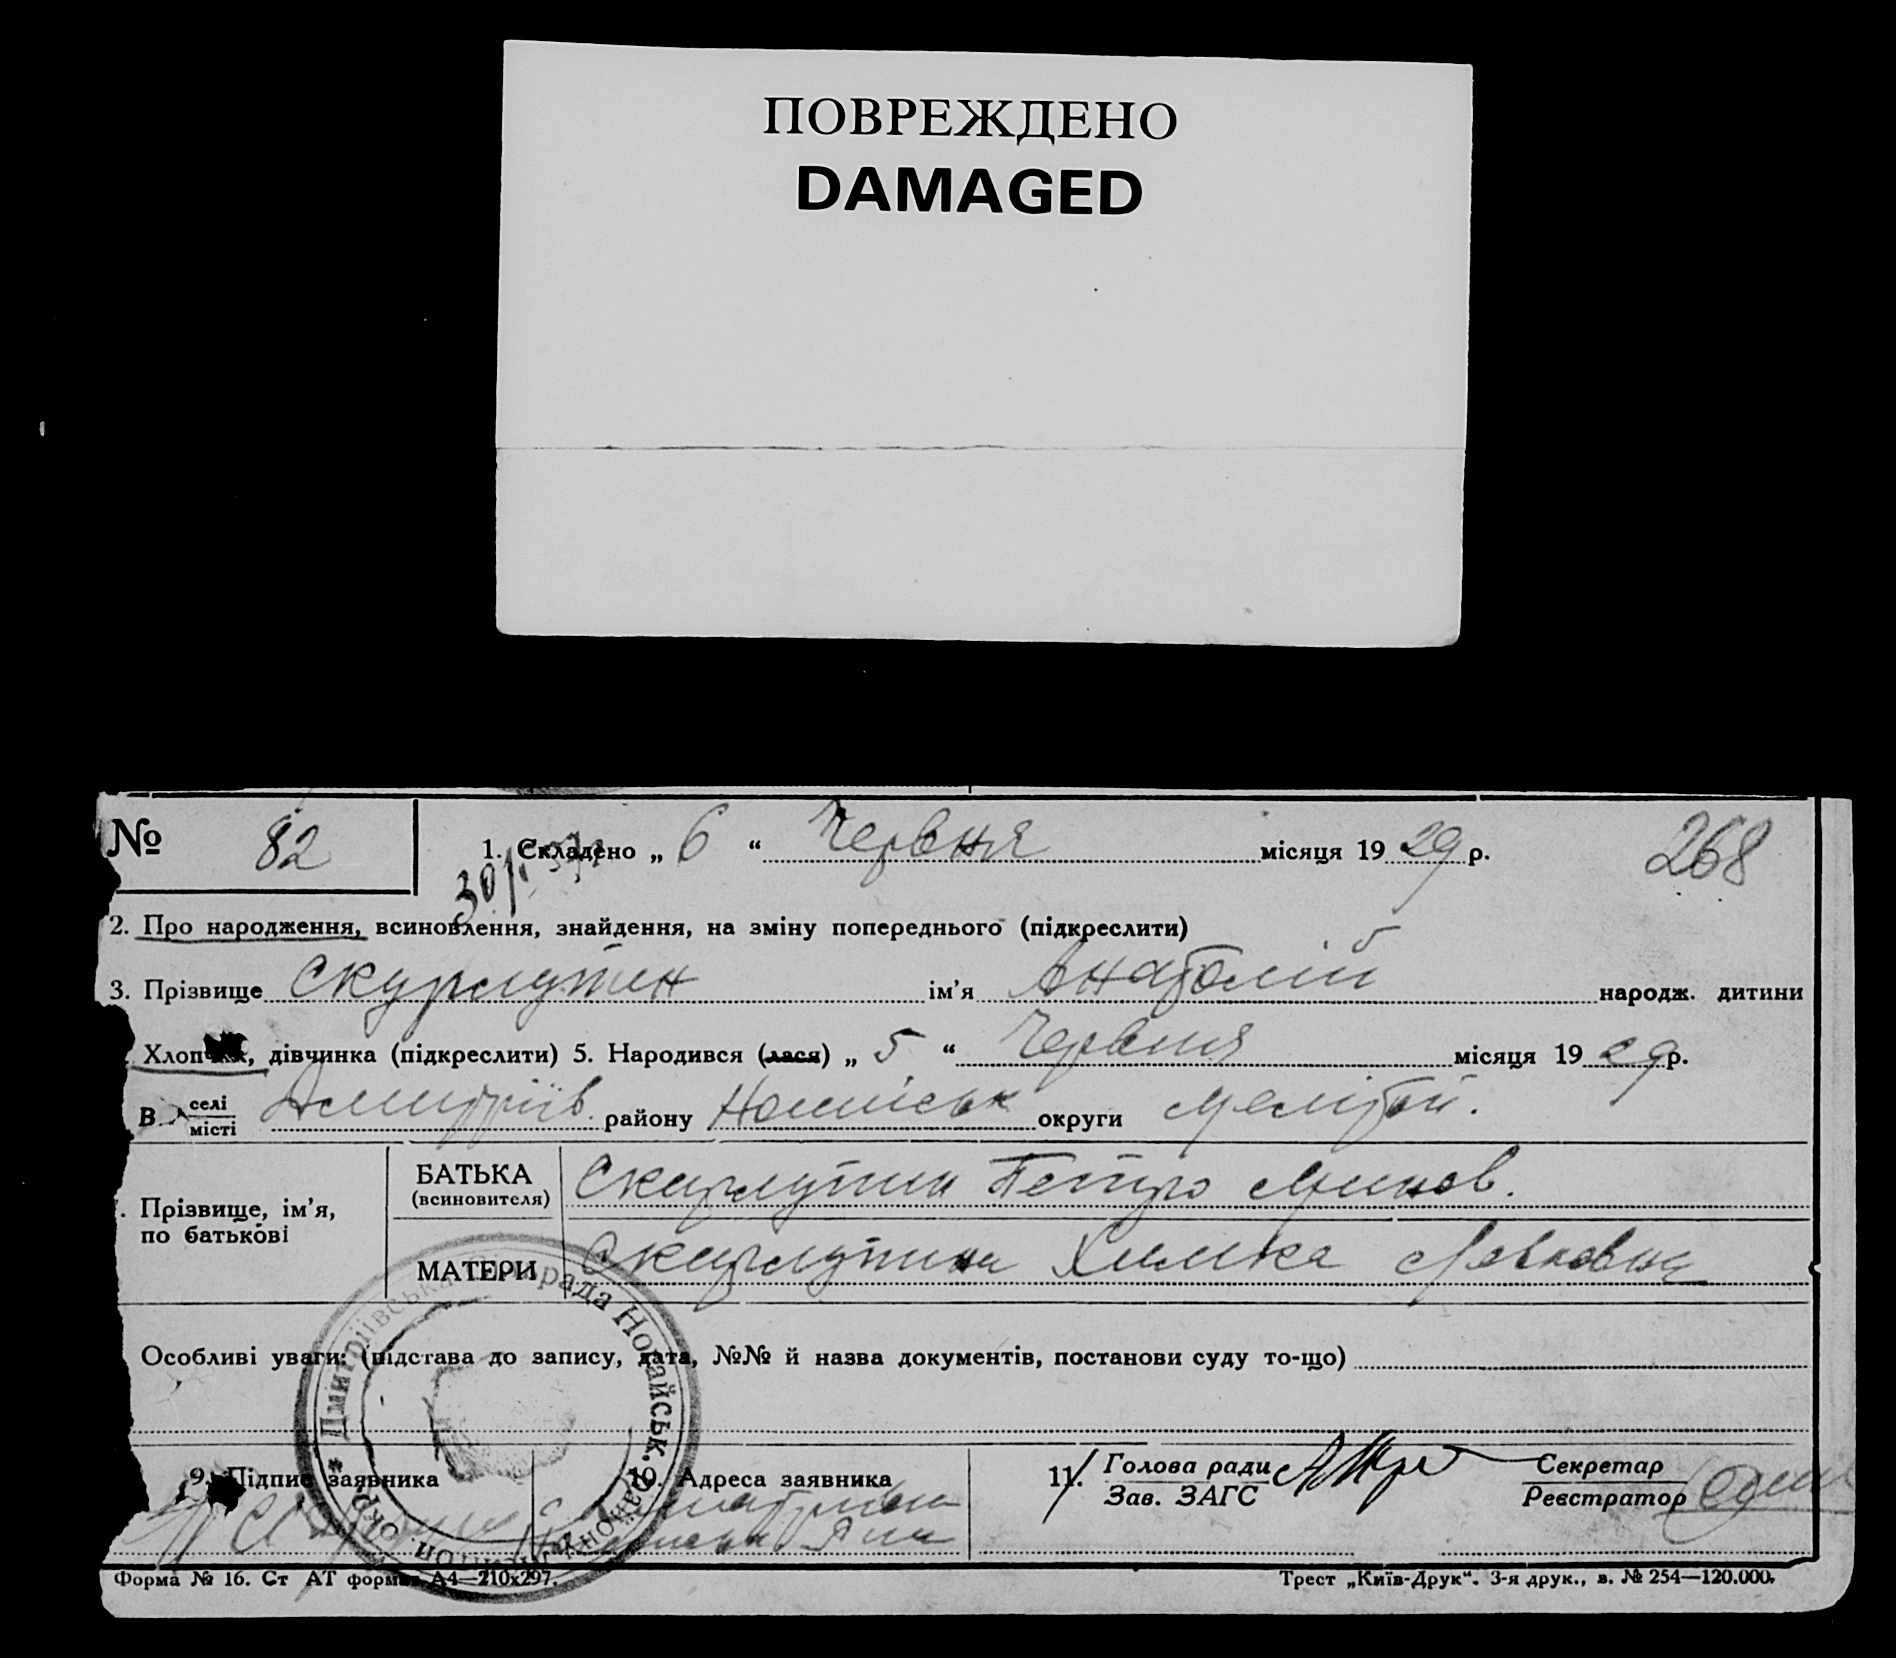 ПОВРЕЖДЕНО
DAMAGED
№ 82
1. Складено „ 6 “ Червня місяця 19 29 р.
268
2. Про народження, всиновлення, знайдення, на зміну попереднього (підкреслити)
3. Прізвище Скурлутен ім’я Анатолій народж. дитини
Хлопчик, дівчинка (підкреслити) 5. Народився (лася) „ 5 “ Червня місяця 19 29 р.
В селі місті Дмитріїв. району округи Мелітоп.
Прізвище, ім’я, по батькові
БАТЬКА (всиновителя) Скирлутин Петро Минов.
МАТЕРИ Скирлутина Химка
Особливі уваги: (підстава до запису, дата, №№ й назва документів, постанови суду то-що)
9. Підпис заявника
10. Адреса заявника
11. Голова ради
Зав. ЗАГС
Секретар
Реєстратор
* Дмитріївська сільрада Ногайськ. району Мелітоп. окр.
Форма № 16. Ст АТ формат А4—210х297.
Трест „Київ-Друк“. 3-я друк., в. № 254—120.000.